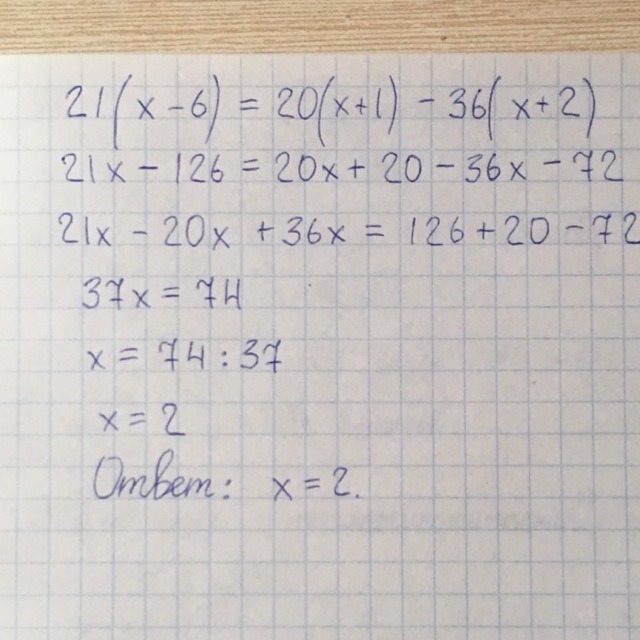 21(x-6) = 20(x+1) - 36(x+2)
21x - 126 = 20x + 20 - 36x - 72
21x - 20x + 36x = 126 + 20 - 72
37x = 74
x = 74 : 37
x = 2
Ответ: x = 2.